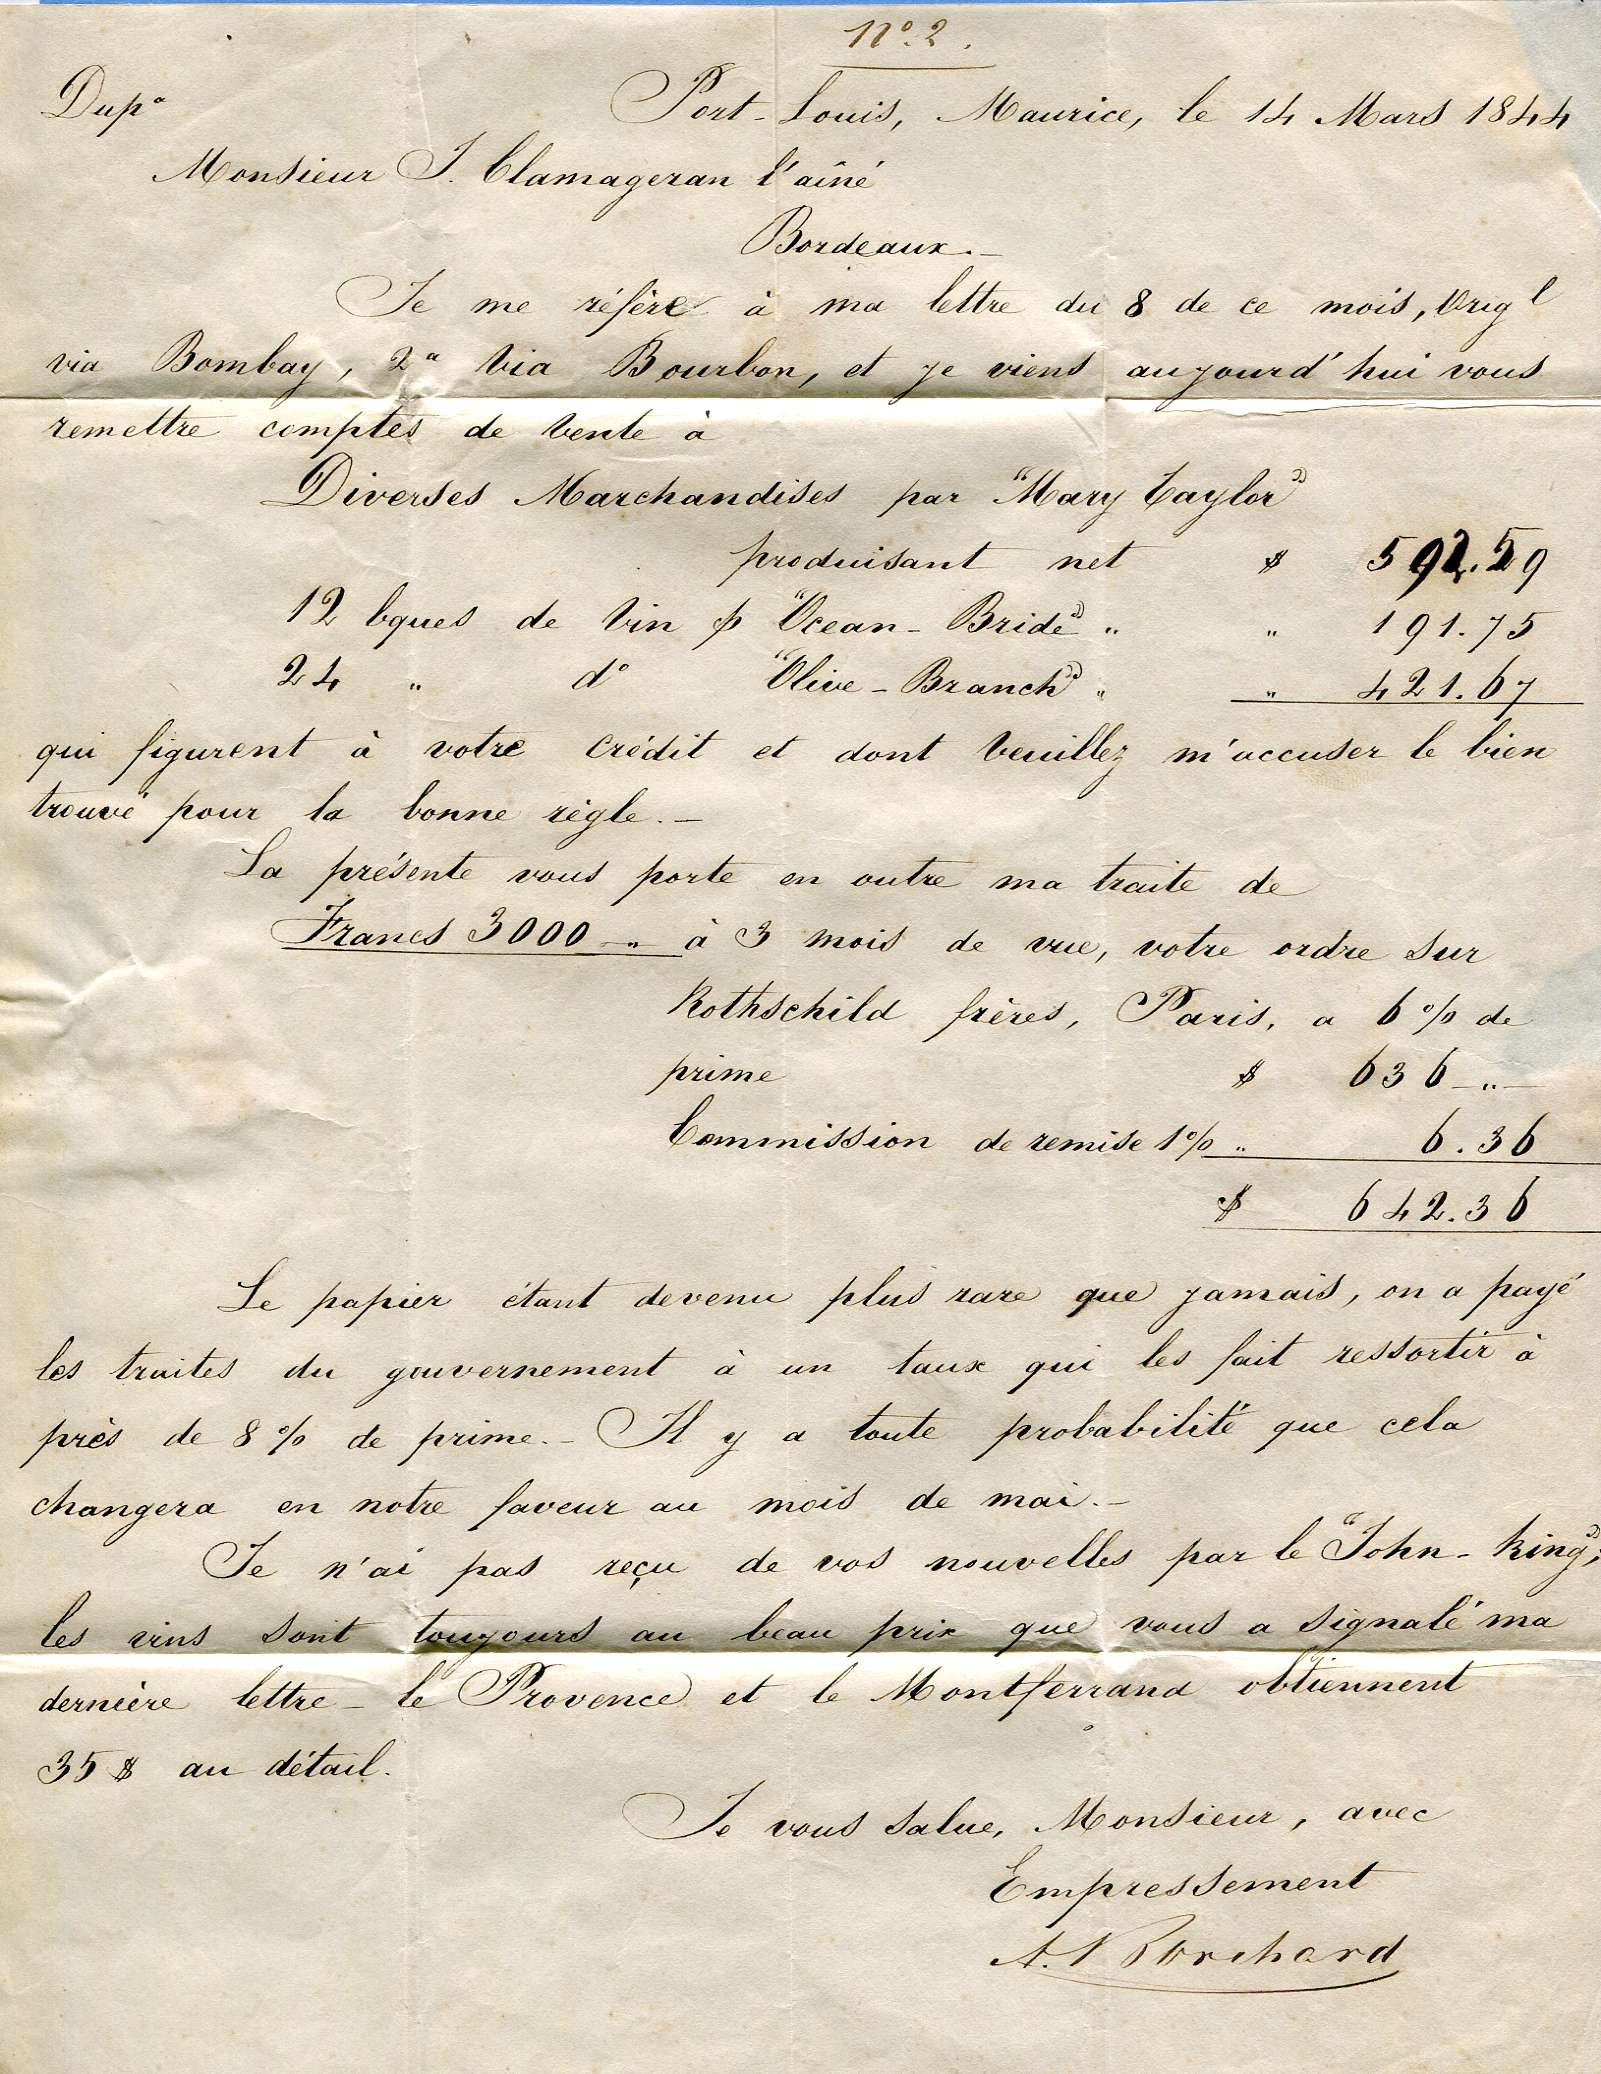 N°. 2.
Dupa
Port-Louis, Maurice, le 14 Mars 1844
Monsieur J. Clamageran l'aîné
Bordeaux.-
Je me réfère à ma lettre du 8 de ce mois, Origl
via Bombay, 2a via Bourbon, et je viens aujourd'hui vous
remettre comptes de vente à
Diverses Marchandises par "Mary Taylor"
produisant net $ 592.59
12 bques de vin p "Ocean-Bride" " " 191.75
24 " d° "Olive-Branch" " " 421.67
qui figurent à votre crédit et dont veuillez m'accuser le bien
trouvé pour la bonne règle.-
La présente vous porte en outre ma traite de
Francs 3000 -"- à 3 mois de vue, votre ordre sur
Rothschild frères, Paris, a 6 % de
prime $ 636 -"-
Commission de remise 1% " 6.36
$ 642.36
Le papier étant devenu plus rare que jamais, on a payé
les traites du gouvernement à un taux qui les fait ressortir à
près de 8 % de prime.- Il y a toute probabilité que cela
changera en notre faveur au mois de mai.-
Je n'ai pas reçu de vos nouvelles par le "John-King";
les vins sont toujours au beau prix que vous a signalé ma
dernière lettre - le Provence et le Montferrand obtiennent
35 $ au détail.
Je vous salue, Monsieur, avec
Empressement